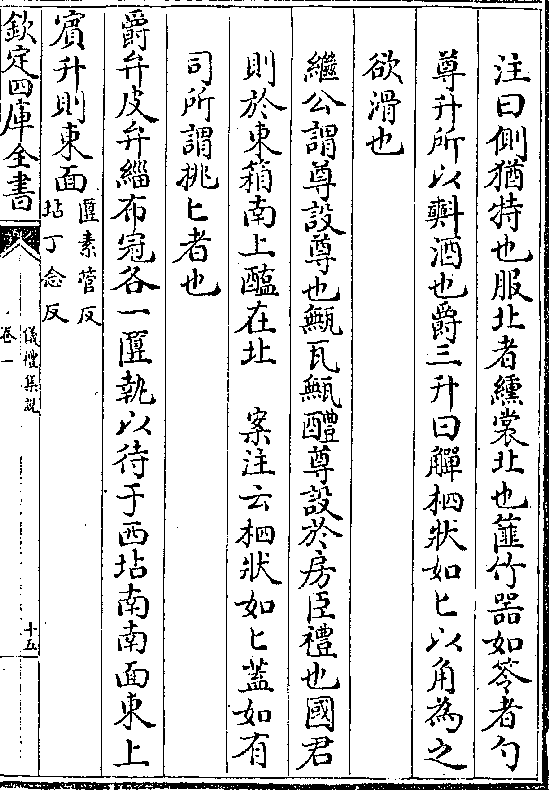 注曰側猶特也服北者纁裳北也篚竹器如笭者勺
尊升所以㪺酒也爵三升曰觶柶狀如匕以角為之
欲滑也
繼公謂尊設尊也甒瓦甒醴尊設於房臣禮也國君
則於東箱南上醢在北　案注云柶狀如匕蓋如有
司所謂挑匕者也
爵弁皮弁緇布冠各一匴執以待于西坫南南面東上
賓升則東面匴素管反坫丁念反
欽定四庫全書
儀禮集說
卷一
十五